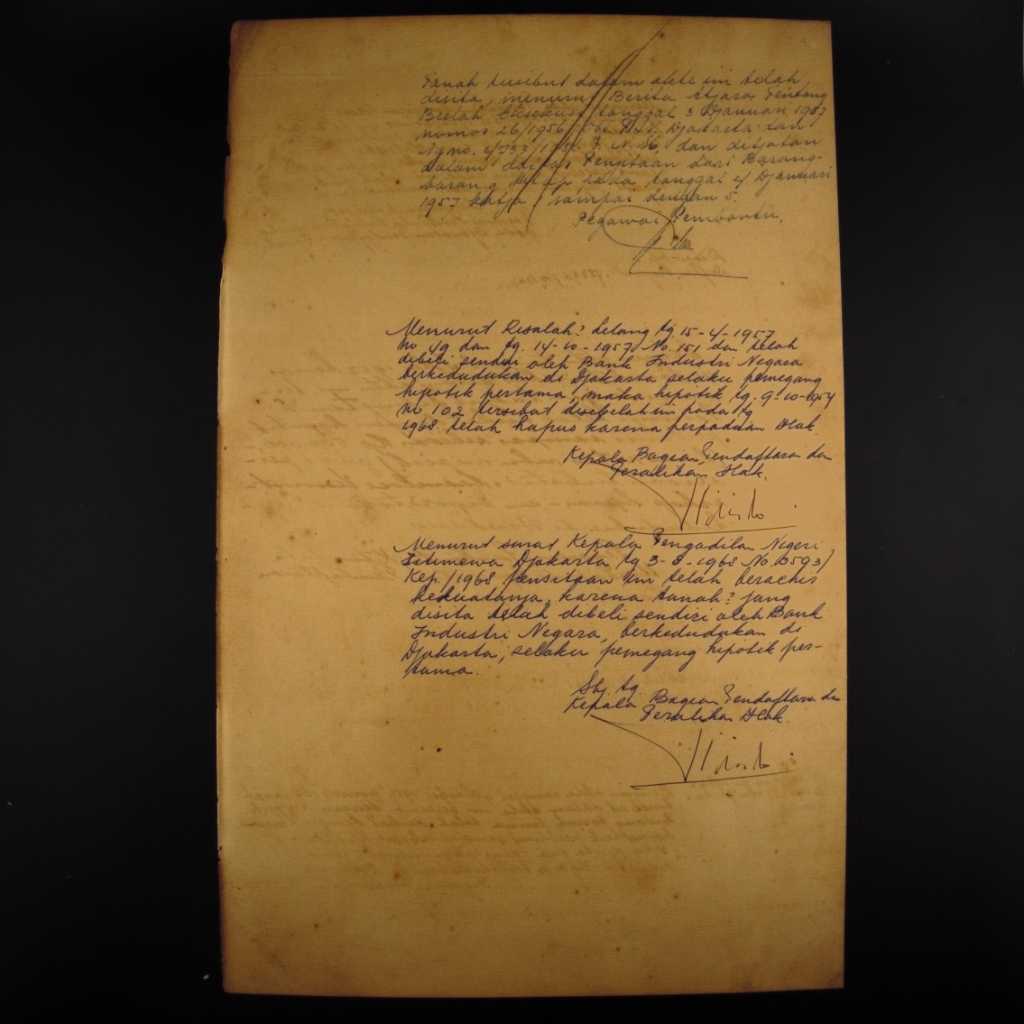 Tanah tersebut dalam akte ini telah
disita, menurut Berita Atjara tentang
Beslah Eksekusi tanggal 3 Djanuari 1957
nomor 26/1956 Djakarta dan
dan ditjatat
dalam daftar Penjitaan dari Barang-
barang tetap pada tanggal 4 Djanuari
1957 katja 1 sampai dengan 5.
Pegawai Pembantu,
Menurut Risalah2 Lelang tg 15-4-1957
No 49 dan tg. 14-10-1957 No. 151 dan telah
dibeli sendiri oleh Bank Industri Negara
berkedudukan di Djakarta selaku pemegang
hipotik pertama, maka hipotik tg. 9-10-1954
No 102 tersebut disebelah ini pada tg
1968 telah hapus karena perpaduan Hak.
Kepala Bagian Pendaftaran dan
Peralihan Hak.
Menurut surat Kepala Pengadilan Negeri
Istimewa Djakarta tg 3-8-1968 No
Kep./1968 pensitaan ini telah berachir
kekuatanja, karena tanah2 jang
disita telah dibeli sendiri oleh Bank
Industri Negara, berkedudukan di
Djakarta, selaku pemegang hipotik per-
tama.
tg.
Kepala Bagian Pendaftaran dan
Peralihan Hak.